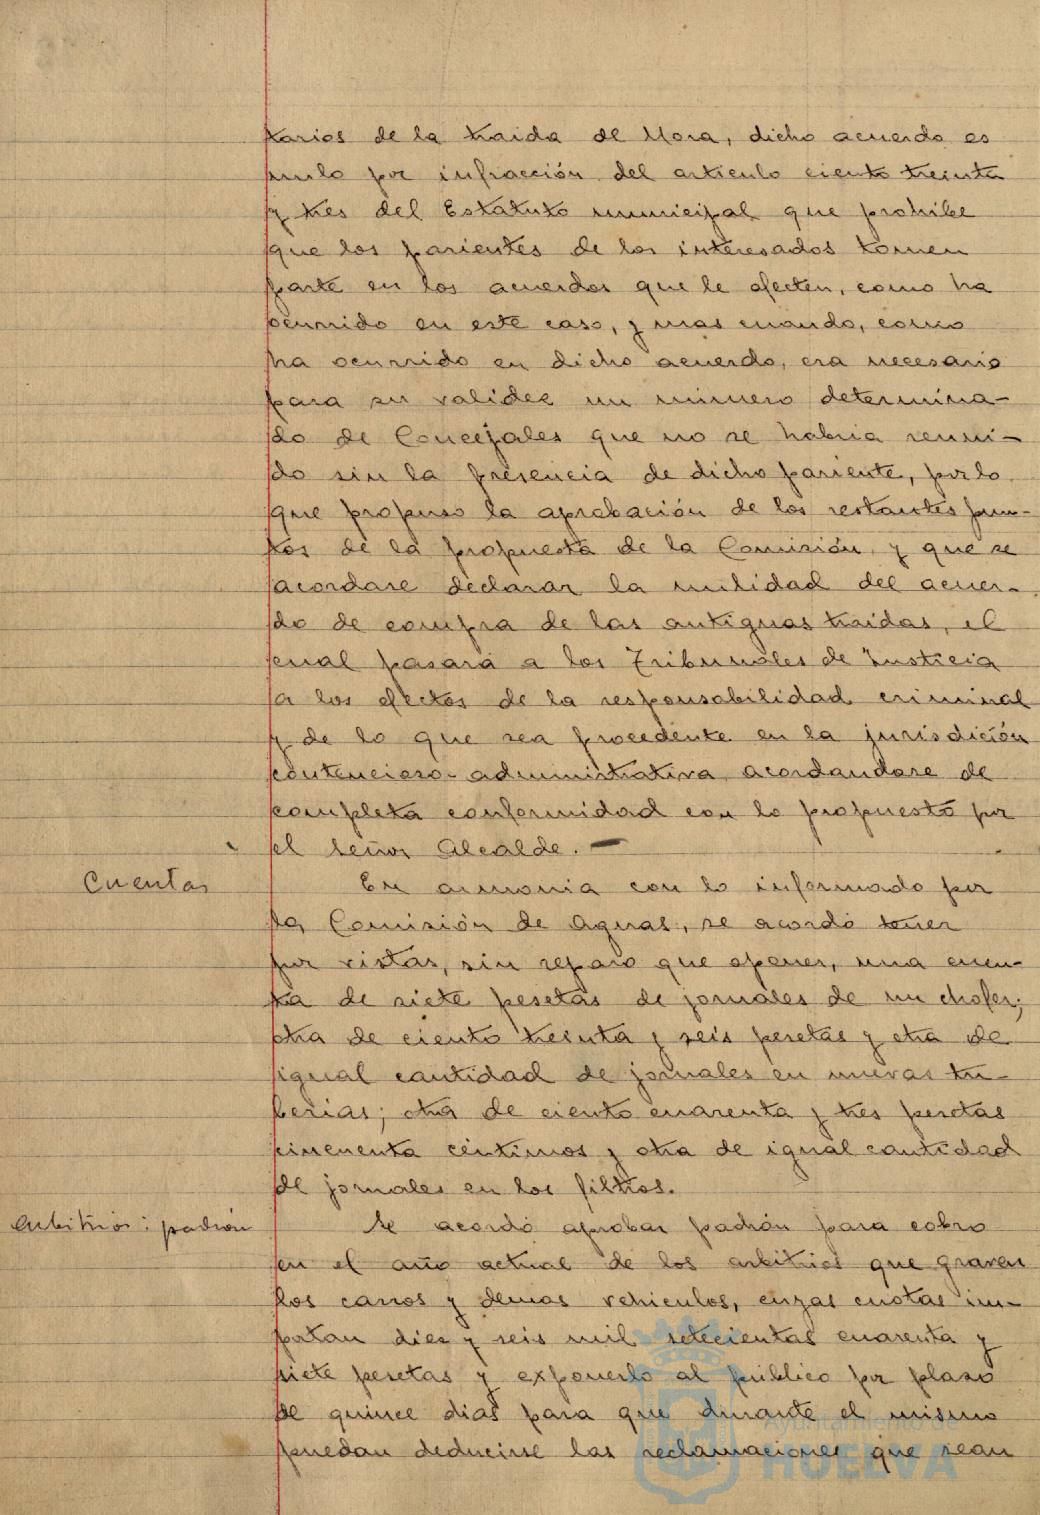 tarios de la traida de Mora, dicho acuerdo es
nulo por infracción del articulo ciento treinta
y tres del Estatuto municipal que prohibe
que los parientes de los interesados tomen
parte en los acuerdos que le afecten, como ha
ocurrido en este caso, y mas cuando, como
ha ocurrido en dicho acuerdo, era necesario
para su validez un numero determina-
do de Concejales que no se habria reuni-
do sin la presencia de dicho pariente, por lo
que propuso la aprobación de los restantes pun-
tos de la propuesta de la Comisión y que se
acordase declarar la nulidad del acuer-
do de compra de las antiguas traidas, el
cual pasará a los Tribunales de Justicia
a los efectos de la responsabilidad criminal
y de lo que sea procedente en la jurisdición
contencioso-administrativa acordandose de
completa conformidad con lo propuesto por
el Señor Alcalde. —
Cuentas
En armonia con lo informado por
la Comisión de Aguas, se acordó tener
por vistas, sin reparo que oponer, una cuen-
ta de siete pesetas de jornales de un chofer;
otra de ciento treinta y seis pesetas y otra de
igual cantidad de jornales en nuevas tu-
berias; otra de ciento cuarenta y tres pesetas
cincuenta céntimos y otra de igual cantidad
de jornales en los filtros.
Arbitrios: padrón
Se acordó aprobar padrón para cobro
en el año actual de los arbitrios que graven
los carros y demas vehiculos, cuyas cuotas im-
portan diez y seis mil setecientas cuarenta y
siete pesetas y exponerlo al público por plazo
de quince dias para que durante el mismo
puedan deducirse las reclamaciones que sean
Ayuntamiento de
HUELVA